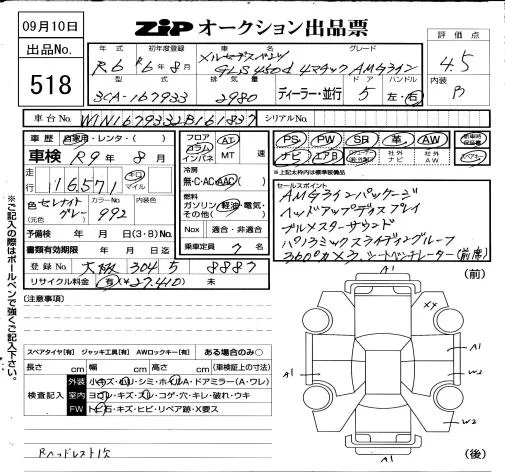 09月10日
ZIP オークション出品票
出品No.
518
評価点
4.5
内装
B
年式 初年度登録 車名 グレード
R6 R6年8月 メルセデスベンツ GLS450d 4マチック AMGライン
型式 排気量 ドア ハンドル
3CA-167933 2980 ディーラー・並行 5 左・右
車台No. W1N1679332B161837 シリアルNo.
車歴 自家用・レンタ・( )
車検 R9年8月
走行 16571 キロ マイル
色 セレナイトグレー カラーNo. 992
(元色)
予備検 年 月 日(3・8)No.
書類有効期限 年 月 日迄
登録No. 大阪 304 5 8887
リサイクル料金 有(¥27,410) 未
フロア コラム インパネ AT MT 速
冷房 無・C・AC・AAC
燃料 ガソリン・軽油・電気・その他( )
Nox 適合・非適合
乗車定員 7 名
PS PW SR 革 AW 新車時保証書
ナビ エアB 社外ナビ 社外AW
※上記太枠内は標準装備品
セールスポイント
AMGラインパッケージ
ヘッドアップディスプレイ
ブルメスターサウンド
パノラミックスライディングルーフ
360°カメラ シートベンチレーター(前席)
(注意事項)
スペアタイヤ[有] ジャッキ工具[有] AWロックキー[有] ある場合のみ○
長さ cm 幅 cm 高さ cm (車検証上の寸法)
検査記入
外装 小キズ・凹リ・シミ・ホイルA・ドアミラー(A・ワレ)
室内 ヨゴレ・キズ・スレ・コゲ・穴・キレ・破れ・ウキ
FW トビ石・キズ・ヒビ・リペア跡・X要ス
Rヘッドレスト1欠
※ご記入の際はボールペンで強くご記入下さい。
(前)
A1
XX
A1
A1
W2
W2
A1
(後)